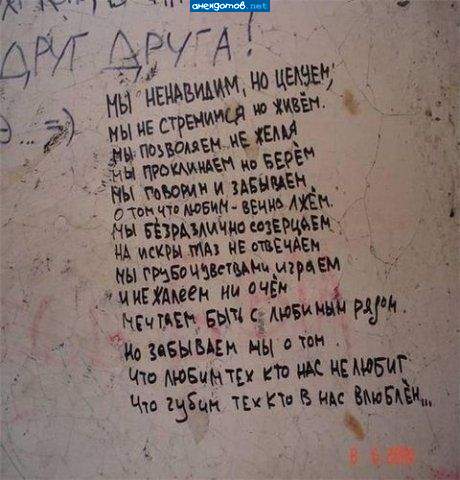 анекдотов.net
ДРУГ ДРУГА!
МЫ НЕНАВИДИМ, НО ЦЕЛУЕМ,
МЫ НЕ СТРЕМИМСЯ НО ЖИВЁМ.
МЫ ПОЗВОЛЯЕМ НЕ ЖЕЛАЯ
МЫ ПРОКЛИНАЕМ НО БЕРЁМ
МЫ ГОВОРИМ И ЗАБЫВАЕМ
О ТОМ ЧТО ЛЮБИМ - ВЕЧНО ЛЖЁМ.
МЫ БЕЗРАЗЛИЧНО СОЗЕРЦАЕМ
НА ИСКРЫ ГЛАЗ НЕ ОТВЕЧАЕМ
МЫ ГРУБО ЧУВСТВАМИ ИГРАЕМ
И НЕ ЖАЛЕЕМ НИ О ЧЁМ
МЕЧТАЕМ БЫТЬ С ЛЮБИМЫМ РЯДОМ.
НО ЗАБЫВАЕМ МЫ О ТОМ
ЧТО ЛЮБИМ ТЕХ КТО НАС НЕ ЛЮБИТ
ЧТО ГУБИМ ТЕХ КТО В НАС ВЛЮБЛЁН...